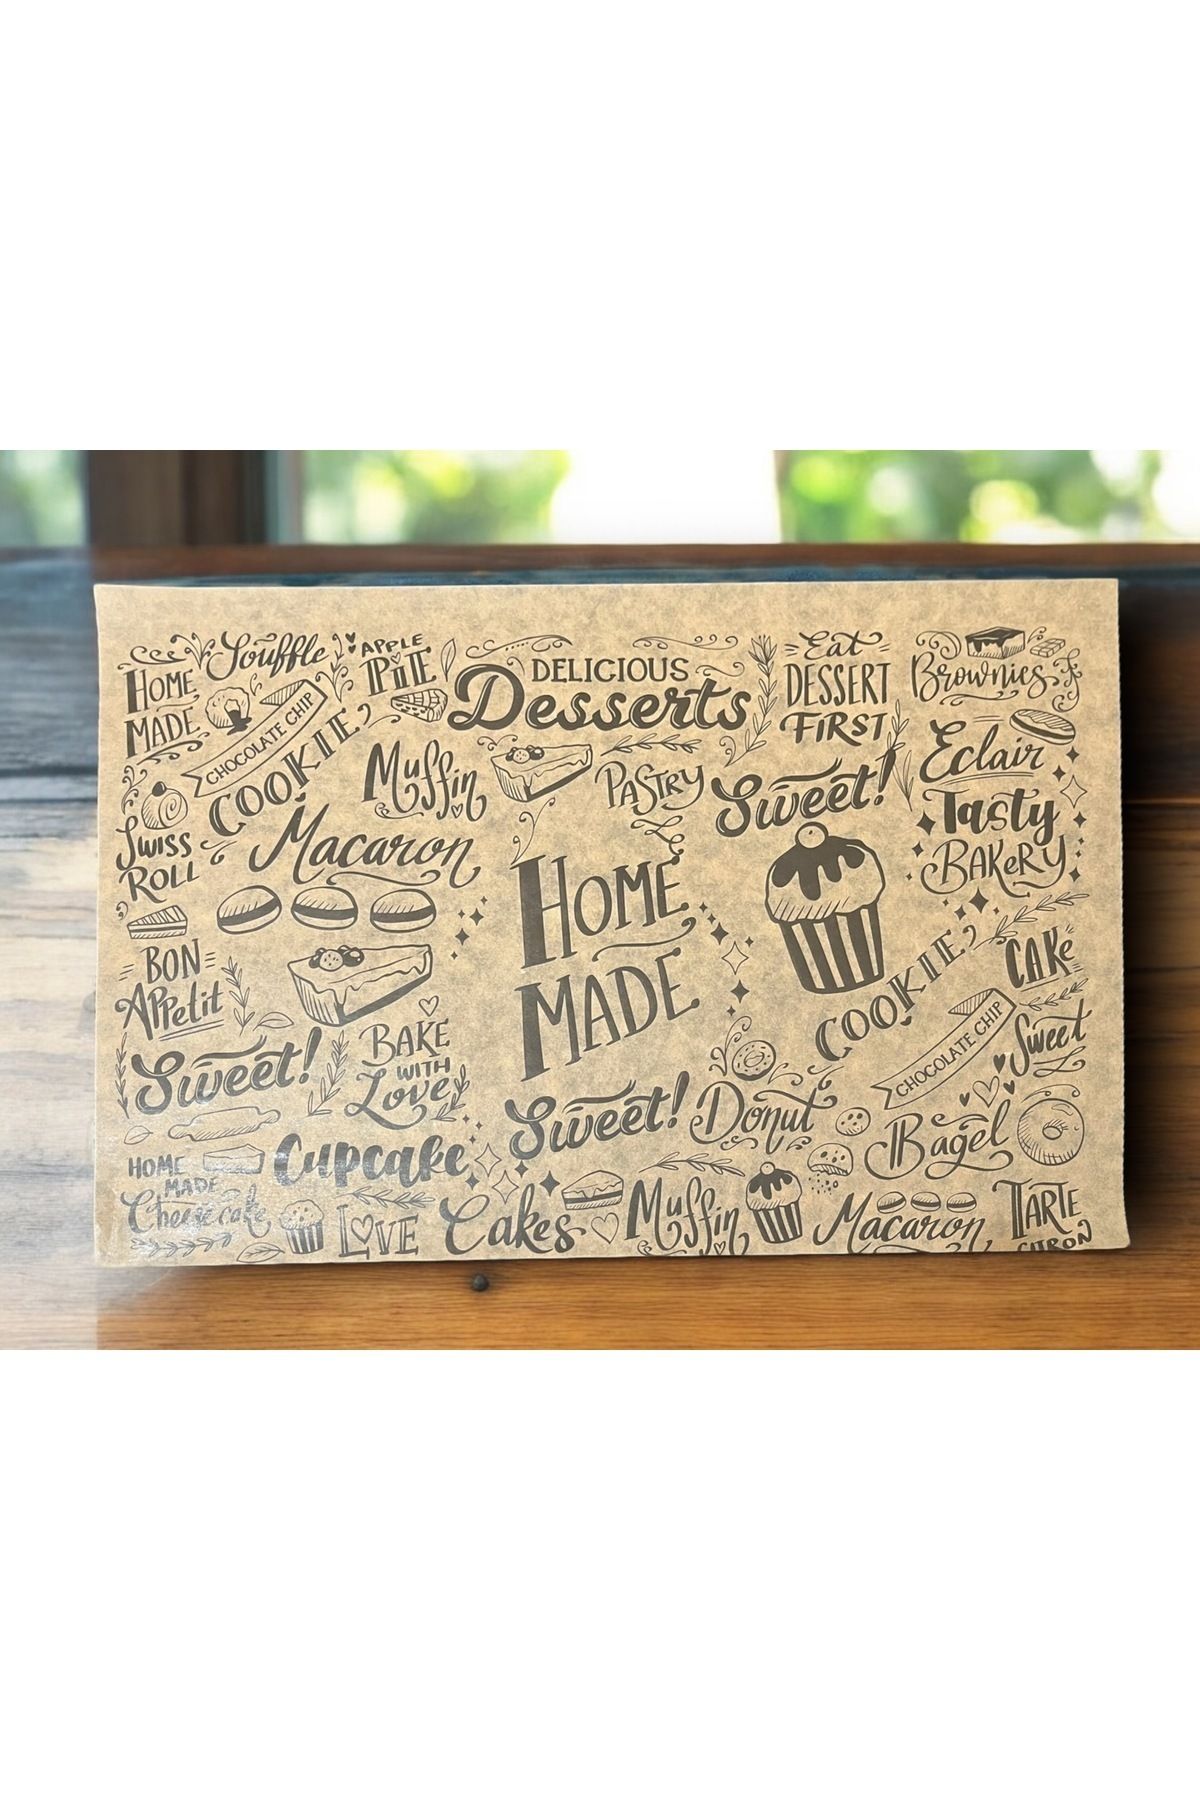 Souffle
APPLE
PIE
HOME
MADE
CHOCOLATE CHIP
COOKIE
DELICIOUS
Desserts
Eat
DESSERT
FIRST
Brownies
Muffin
PASTRY
Sweet!
Eclair
Tasty
BAKERY
SWISS
ROLL
Macaron
HOME
MADE
BON
APPetit
Sweet!
BAKE
WITH
Love
COOKIE
CHOCOLATE CHIP
CAKE
Sweet
Sweet!
Donut
Bagel
HOME
MADE
Cheesecake
Cupcake
LOVE
Cakes
Muffin
Macaron
TARTE
CITRON